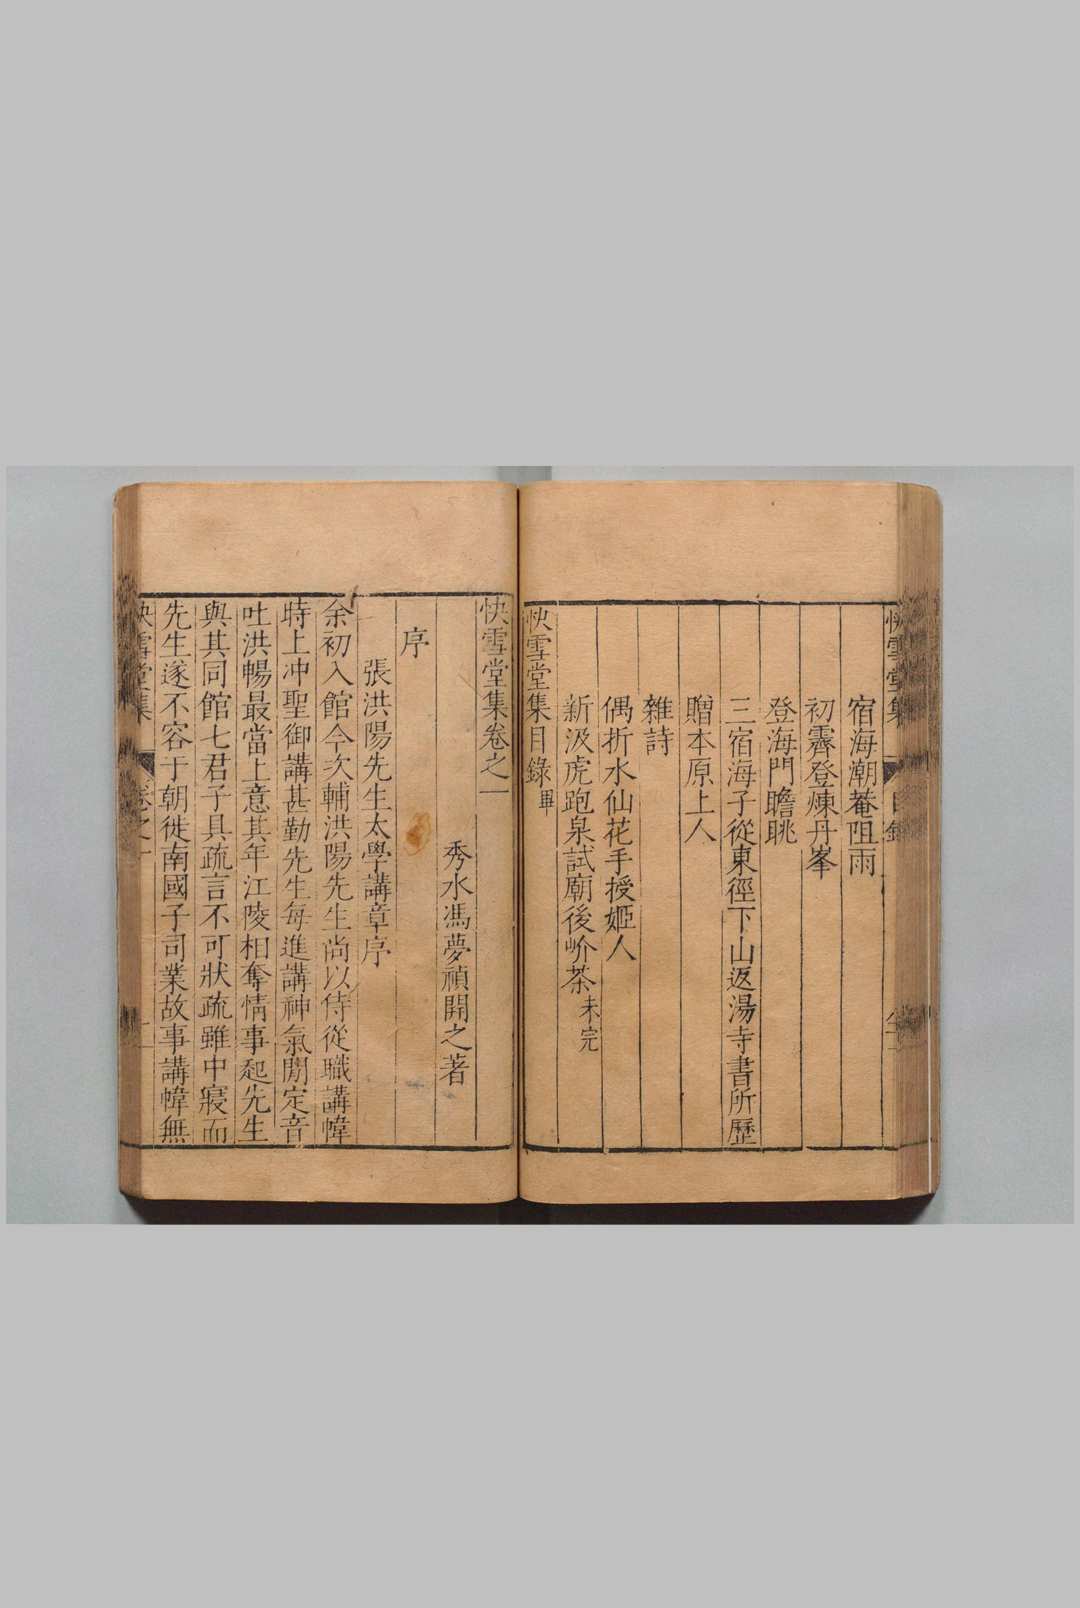 快雪堂集
目錄
宿海潮菴阻雨
初霽登煉丹峯
登海門瞻眺
三宿海子從東徑下山返湯寺書所歷
贈本原上人
雜詩
偶折水仙花手授姬人
新汲虎跑泉試廟後岕茶未完
快雪堂集目錄畢
快雪堂集卷之一
秀水馮夢禎開之著
序
張洪陽先生太學講章序
余初入館今次輔洪陽先生尚以侍從職講幃
時上冲聖御講甚勤先生每進講神氣閒定音
吐洪暢最當上意其年江陵相奪情事起先生
與其同館七君子具疏言不可狀疏雖中寢而
先生遂不容于朝徙南國子司業故事講幃無
快雪堂集
卷之一